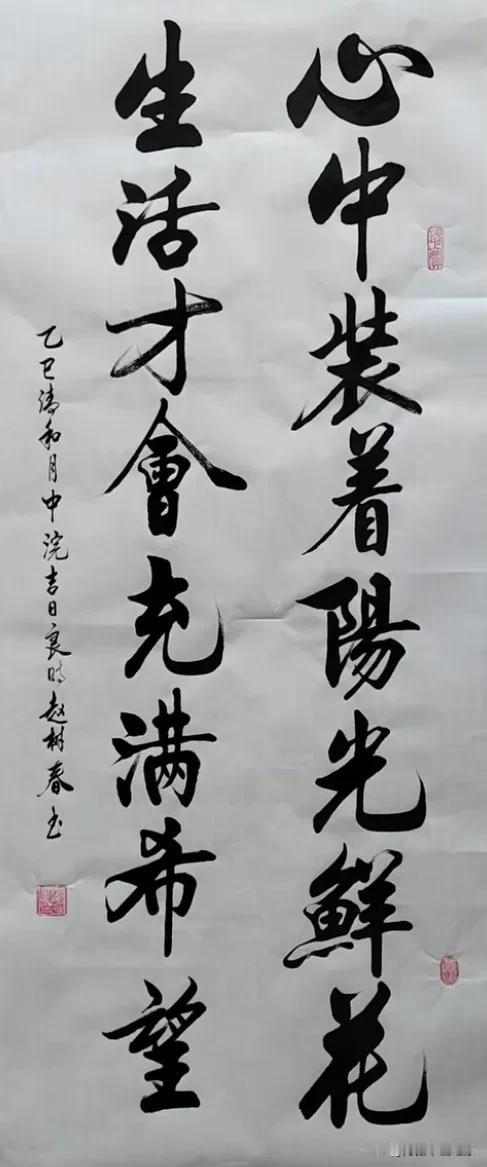 心中装着陽光鮮花
生活才會充满希望
乙巳清和月中浣吉日良时赵树春书